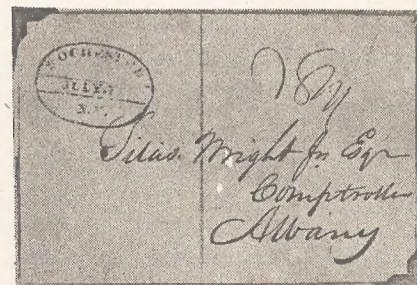 ROCHESTER
N.Y.
Silas Wright Jr Esqr
Comptroller
Albany